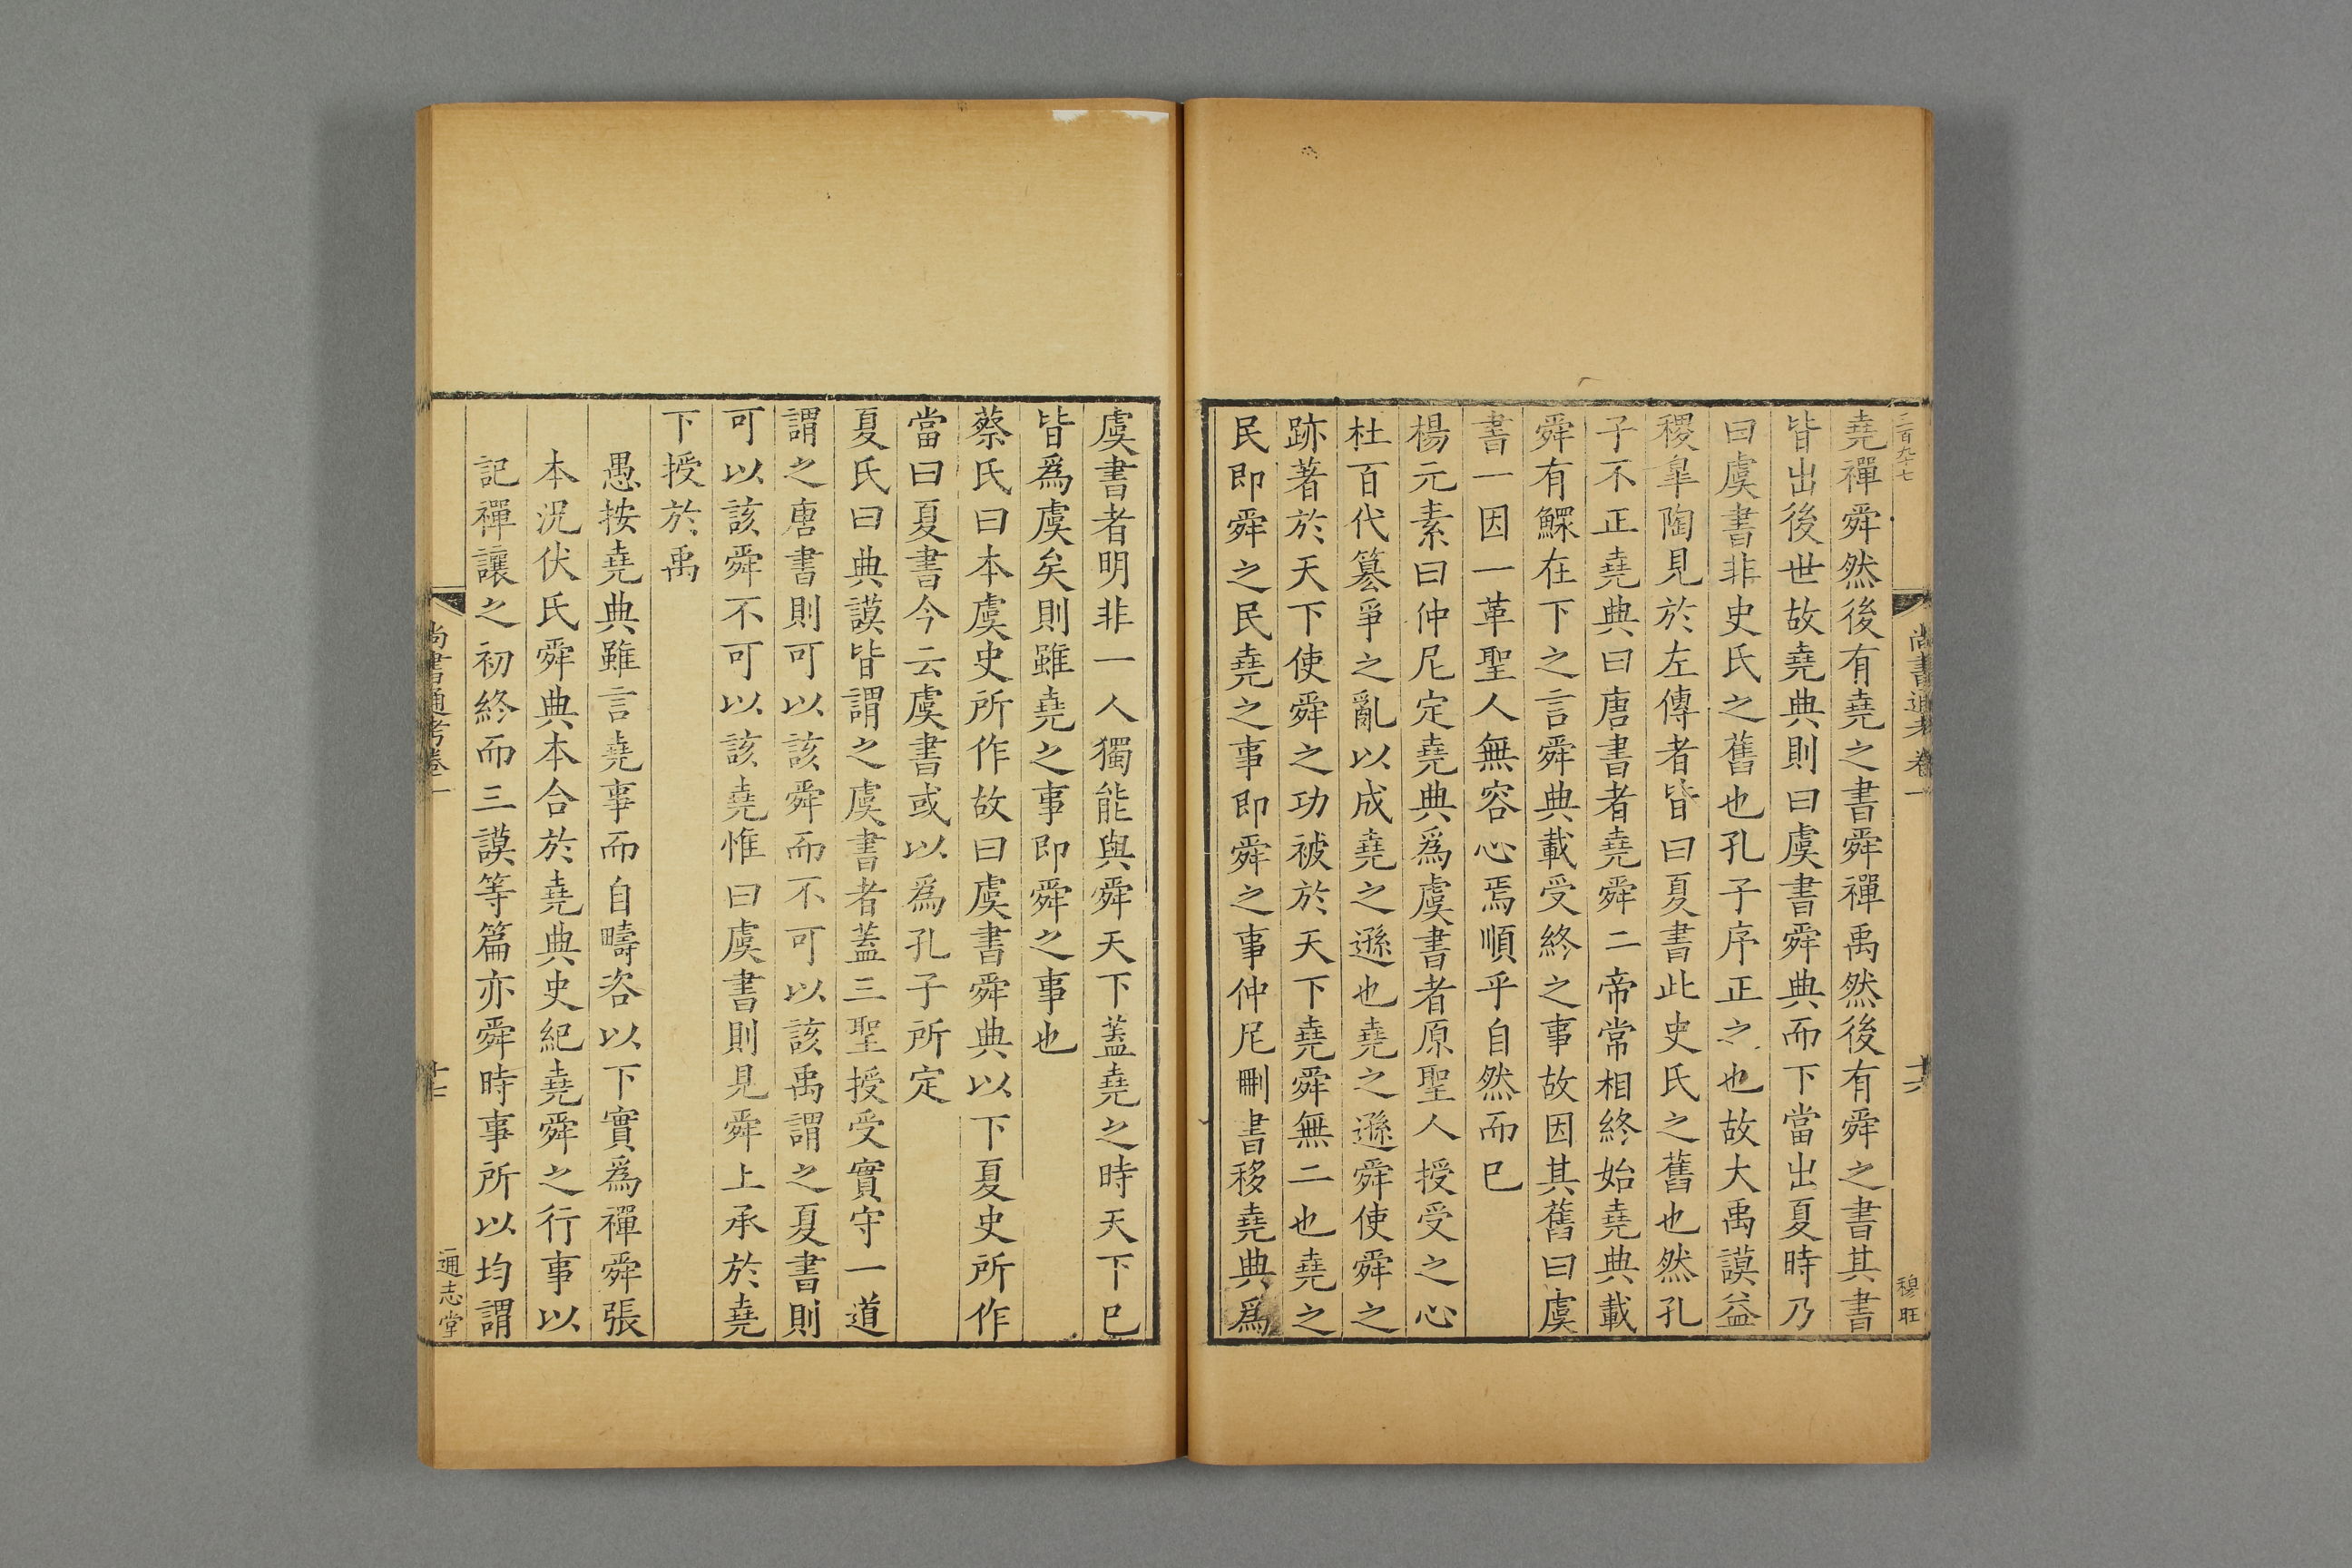 二百九十七
尚書通考卷一
十六
穆旺
堯禪舜然後有堯之書舜禪禹然後有舜之書其書
皆出後世故堯典則曰虞書舜典而下當出夏時乃
曰虞書非史氏之舊也孔子序正之也故大禹謨益
稷皐陶見於左傳者皆曰夏書此史氏之舊也然孔
子不正堯典曰唐書者堯舜二帝常相終始堯典載
舜有鰥在下之言舜典載受終之事故因其舊曰虞
書一因一革聖人無容心焉順乎自然而巳
楊元素曰仲尼定堯典爲虞書者原聖人授受之心
杜百代簒爭之亂以成堯之遜也堯之遜舜使舜之
跡著於天下使舜之功被於天下堯舜無二也堯之
民即舜之民堯之事即舜之事仲尼刪書移堯典爲
虞書者明非一人獨能與舜天下蓋堯之時天下巳
皆爲虞矣則雖堯之事即舜之事也
蔡氏曰本虞史所作故曰虞書舜典以下夏史所作
當曰夏書今云虞書或以爲孔子所定
夏氏曰典謨皆謂之虞書者蓋三聖授受實守一道
謂之唐書則可以該舜而不可以該禹謂之夏書則
可以該舜不可以該堯惟曰虞書則見舜上承於堯
下授於禹
愚按堯典雖言堯事而自疇咨以下實爲禪舜張
本況伏氏舜典本合於堯典史紀堯舜之行事以
記禪讓之初終而三謨等篇亦舜時事所以均謂
尚書通考卷一
十七
通志堂